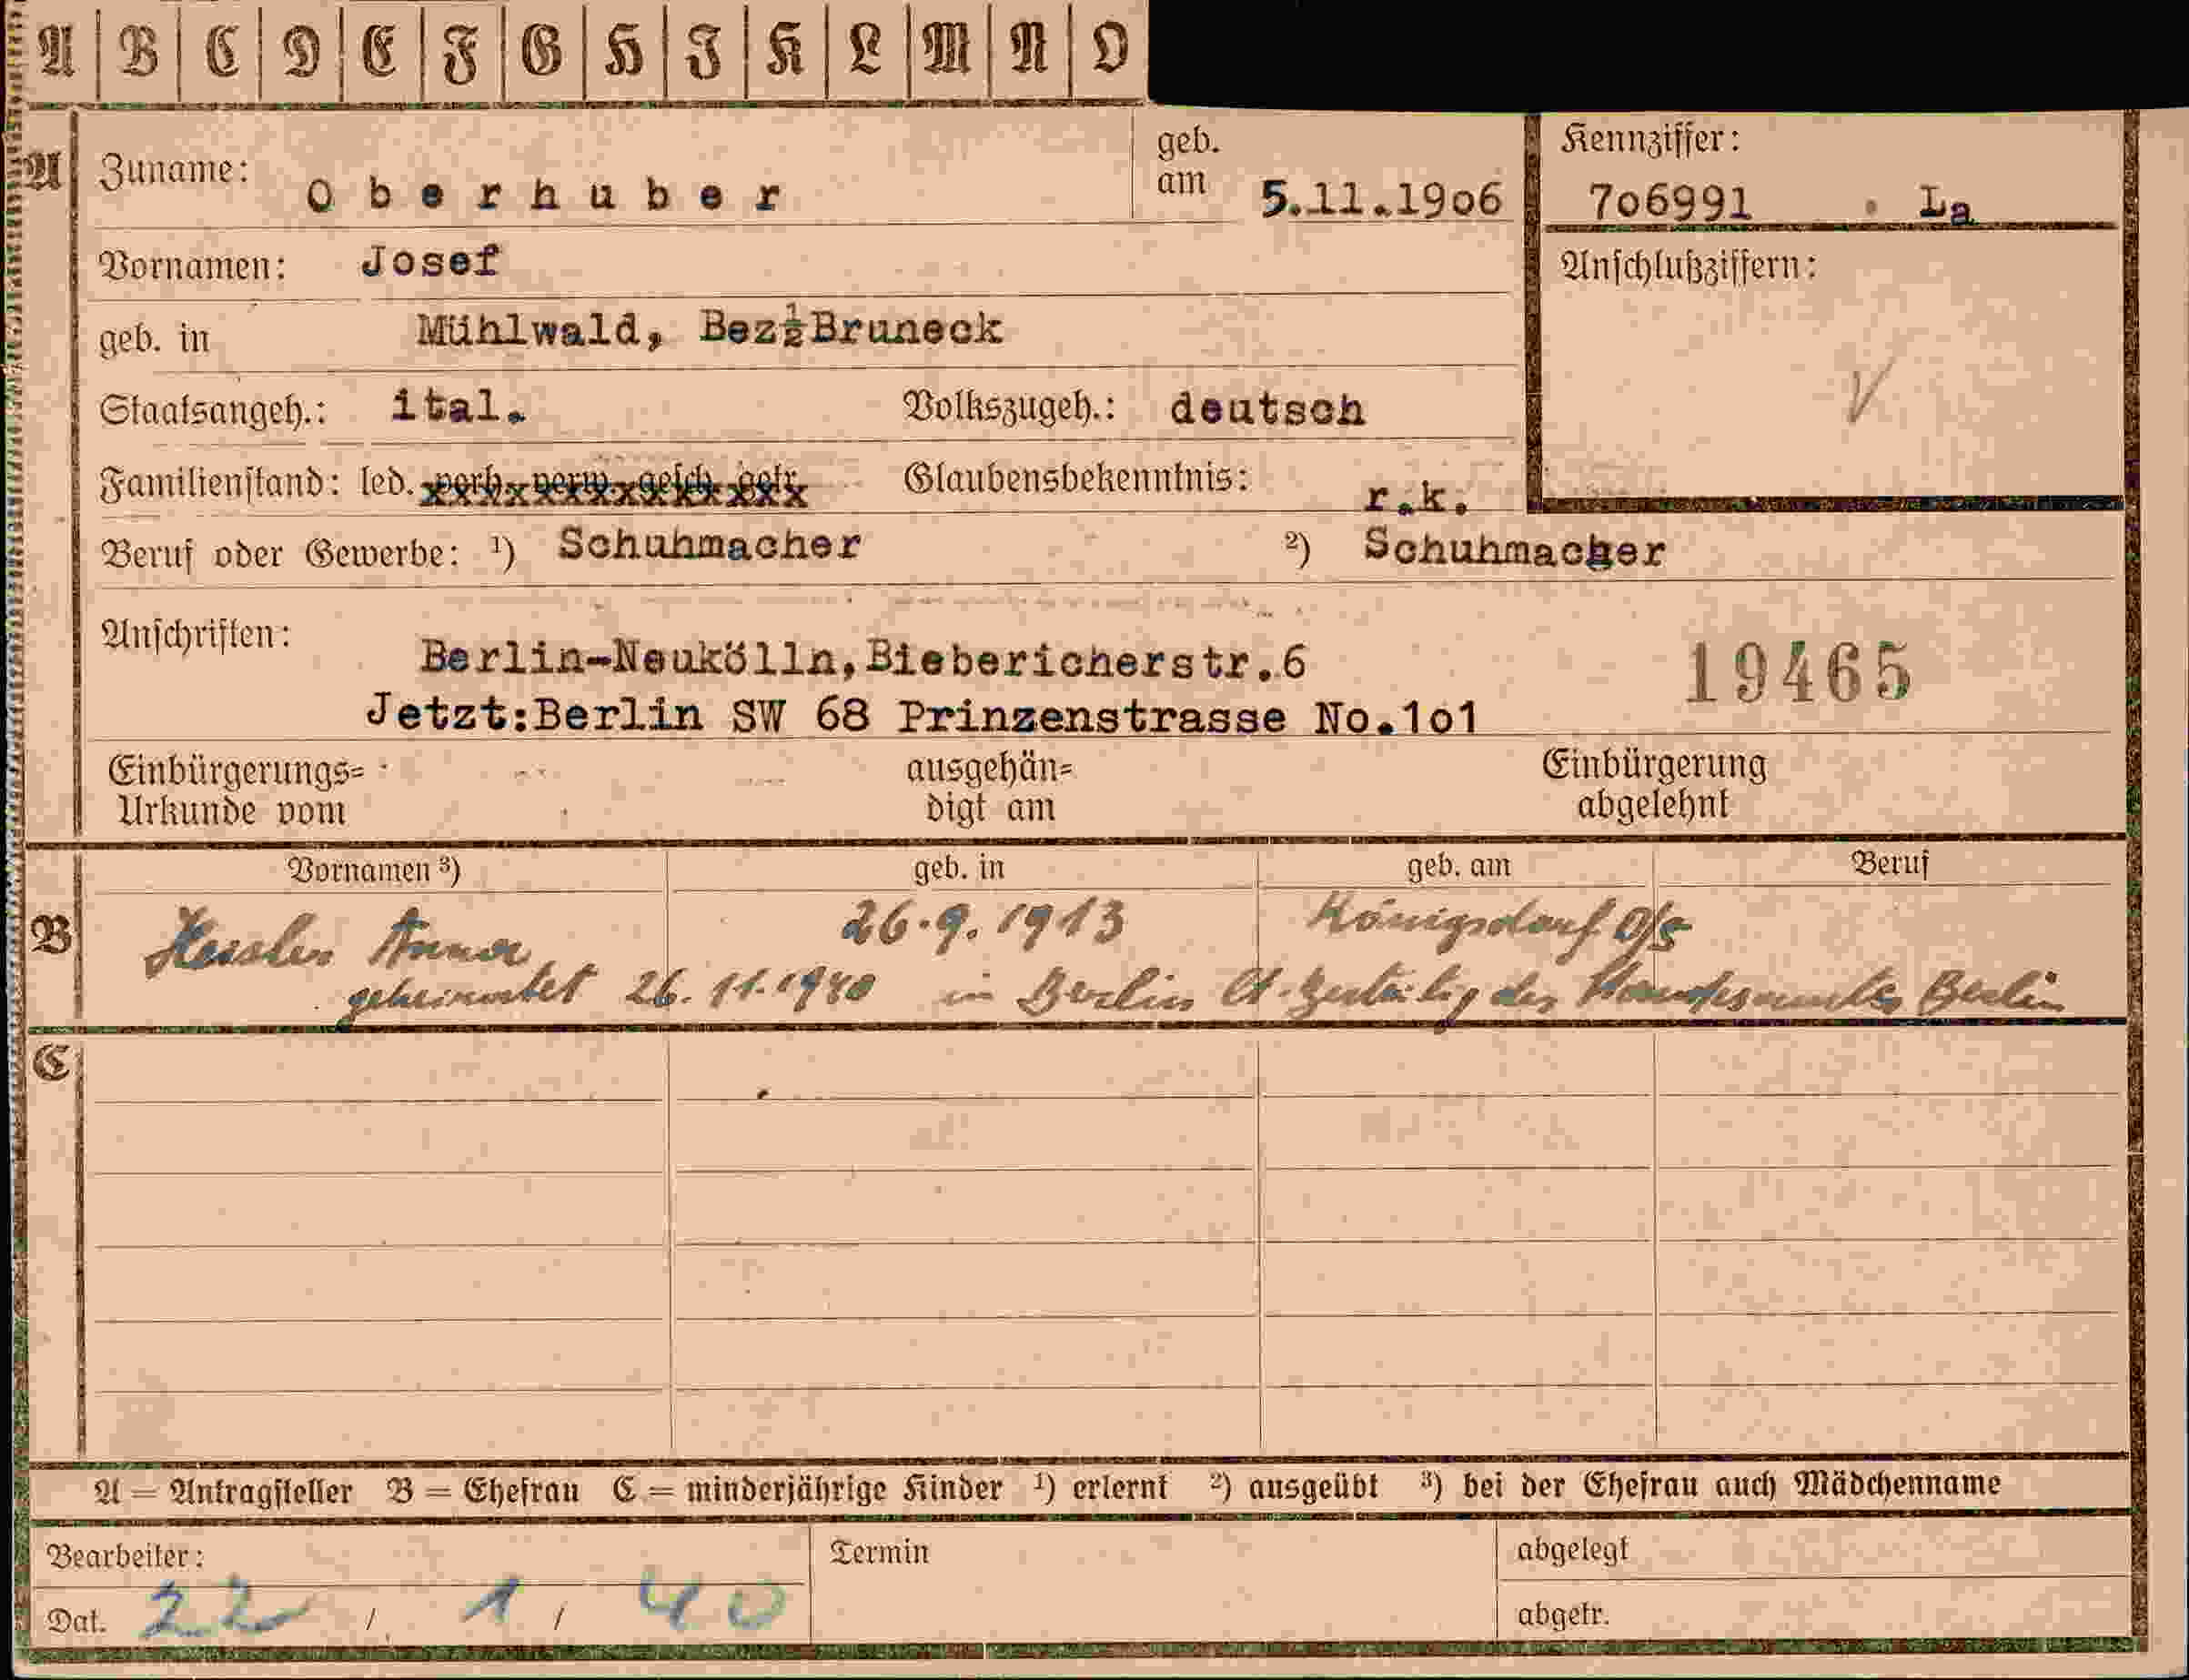 A B C D E F G H I K L M N O
A Zuname: Oberhuber geb. am 5.11.1906 Kennziffer: 706991 . La
Vornamen: Josef Anschlußziffern:
geb. in Mühlwald, Bez½Bruneck
Staatsangeh.: ital. Volkszugeh.: deutsch
Familienstand: led. verh. verw. gesch. getr. Glaubensbekenntnis: r.k.
Beruf oder Gewerbe: ¹) Schuhmacher ²) Schuhmacher
Anschriften: Berlin-Neukölln,Biebericherstr.6 19465
Jetzt:Berlin SW 68 Prinzenstrasse No.1o1
Einbürgerungs= ausgehän= Einbürgerung
Urkunde vom digt am abgelehnt
Vornamen ³) geb. in geb. am Beruf
B Anna 26.9.1913 Königsdorf O/S
geheiratet 26.11.1940 in Berlin des Standesamtes Berlin
C
A = Antragsteller B = Ehefrau C = minderjährige Kinder ¹) erlernt ²) ausgeübt ³) bei der Ehefrau auch Mädchenname
Bearbeiter: Termin abgelegt
Dat. 22 / 1 / 40 abgetr.